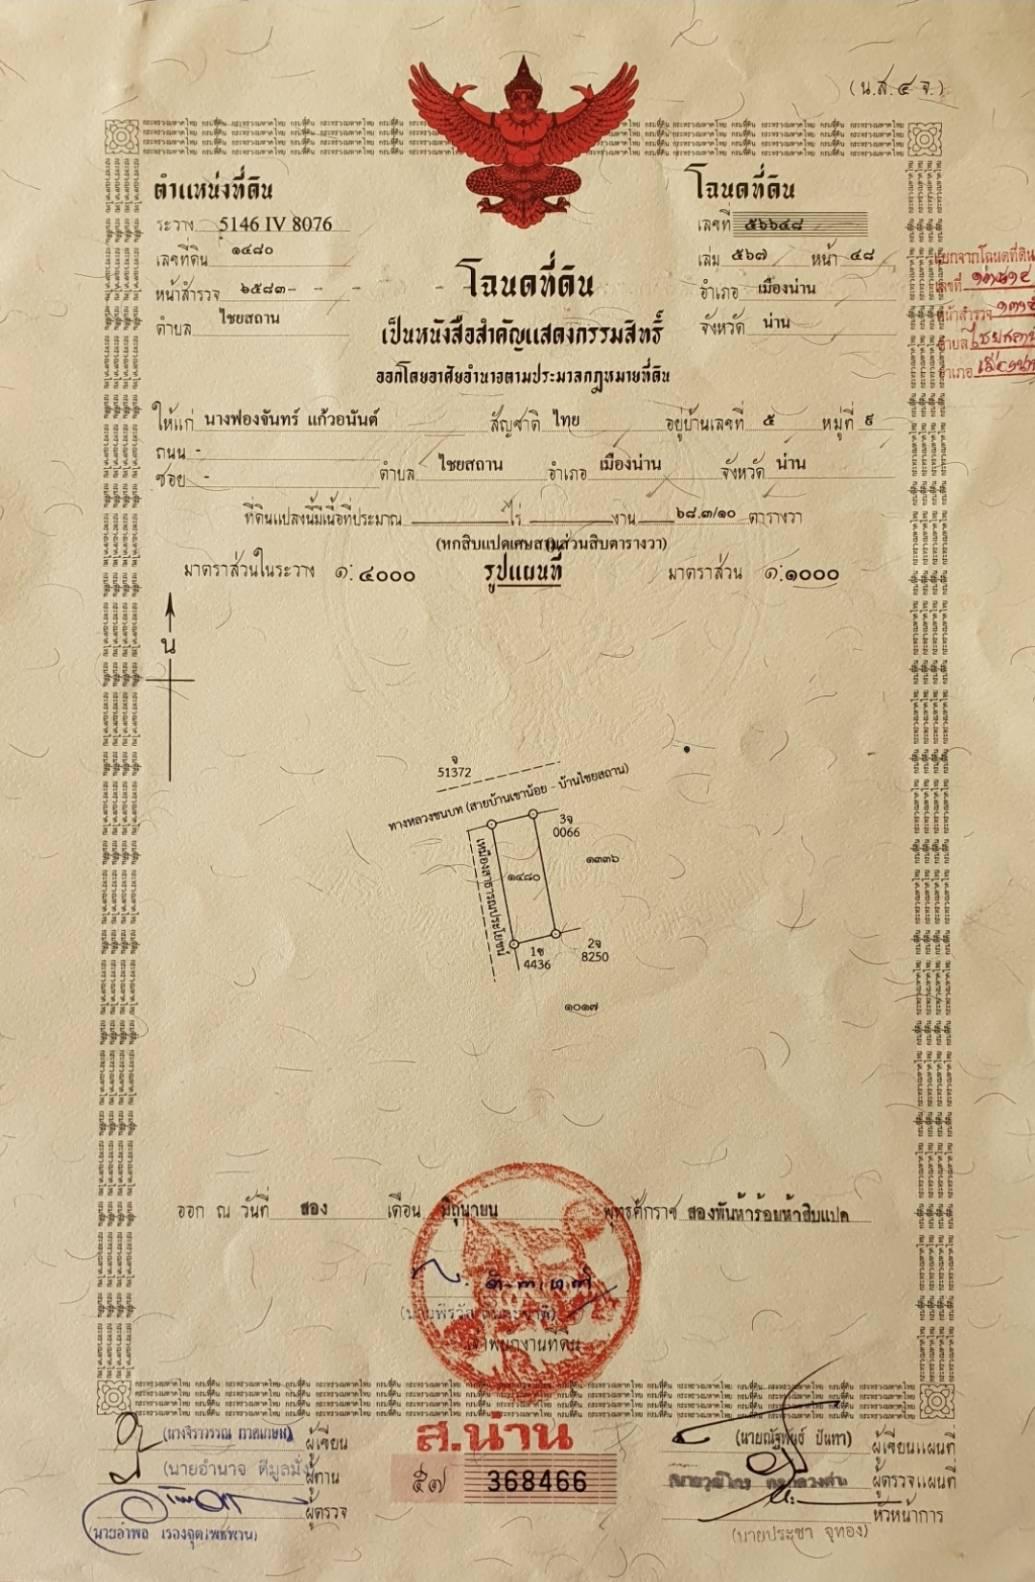 (น.ส.๔ จ.)
ตำแหน่งที่ดิน
โฉนดที่ดิน
ระวาง 5146 IV 8076
เลขที่ ๕๖๖๔๘
เลขที่ดิน ๑๔๘๐
เล่ม ๕๖๗ หน้า ๔๘
หน้าสำรวจ ๖๕๘๓
อำเภอ เมืองน่าน
ตำบล ไชยสถาน
จังหวัด น่าน
แยกจากโฉนดที่ดิน
เลขที่
หน้าสำรวจ
ตำบล ไชยสถาน
อำเภอ เมืองน่าน
โฉนดที่ดิน
เป็นหนังสือสำคัญแสดงกรรมสิทธิ์
ออกโดยอาศัยอำนาจตามประมวลกฎหมายที่ดิน
ให้แก่ นางฟองจันทร์ แก้วอนันต์ สัญชาติ ไทย อยู่บ้านเลขที่ ๕ หมู่ที่ ๙
ถนน -
ซอย - ตำบล ไชยสถาน อำเภอ เมืองน่าน จังหวัด น่าน
ที่ดินแปลงนี้มีเนื้อที่ประมาณ ไร่ งาน ๖๘.๓/๑๐ ตารางวา
(หกสิบแปดเศษสามส่วนสิบตารางวา)
มาตราส่วนในระวาง ๑:๔๐๐๐ รูปแผนที่ มาตราส่วน ๑:๑๐๐๐
น
จ
51372
ทางหลวงชนบท (สายบ้านเขาน้อย - บ้านไชยสถาน)
3จ
0066
๑๓๓๖
๑๔๘๐
เหมืองสาธารณประโยชน์
1ซ
4436
2จ
8250
๑๐๑๗
ออก ณ วันที่ สอง เดือน มิถุนายน พุทธศักราช สองพันห้าร้อยห้าสิบแปด
เจ้าพนักงานที่ดิน
ผู้เขียน
(นายอำนาจ ตีมูลมั่ง) ผู้ทาน
ผู้ตรวจ
(นายอำพล เรืองจุติโพธิ์พาน)
ส.น่าน
๕๗ 368466
(นายณัฐพันธ์ ปันทา) ผู้เขียนแผนที่
ผู้ตรวจแผนที่
หัวหน้าการ
(นายประชา จูทอง)